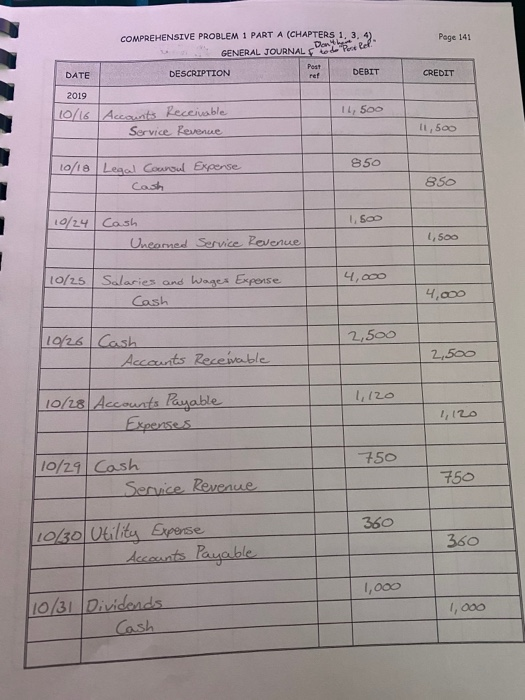 COMPREHENSIVE PROBLEM 1 PART A (CHAPTERS 1, 3, 4) Page 141
Don't have
GENERAL JOURNAL to do Post Ref.
DATE DESCRIPTION Post ref DEBIT CREDIT
2019
10/16 Accounts Receivable 11,500
Service Revenue 11,500
10/18 Legal Counsul Expense 850
Cash 850
10/24 Cash 1,500
Unearned Service Revenue 1,500
10/25 Salaries and Wages Expense 4,000
Cash 4,000
10/26 Cash 2,500
Accounts Receivable 2,500
10/28 Accounts Payable 1,120
Expenses 1,120
10/29 Cash 750
Service Revenue 750
10/30 Utility Expense 360
Accounts Payable 360
10/31 Dividends 1,000
Cash 1,000